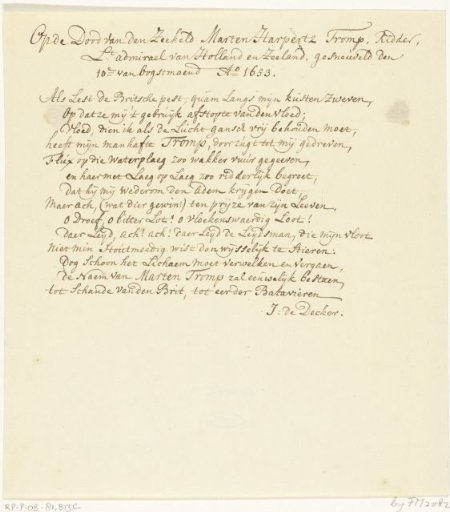 Op de Dood van den Zeeheld Marten Harpertz Tromp. Ridder,
Lt. admirael van Holland en Zeeland. gesneuveld den
10den van oogstmaend Ao 1653.
Als Lest de Britsche pest, quam Langs mijn kusten zweven,
Op dat ze mij 't gebruijk afstopte van den vloed;
Vloed, dien ik als de Lucht gansch vrij behouden moet,
heeft mijn manhafte Tromp, door zugt tot mij gedreven,
Flux op die waterplaeg zoo wakker vuir gegeeven,
en haer met Laeg op Laeg zoo ridderlijk begroet,
Dat hij mij wederom den adem krijgen doet,
Maer ach, (wat dier gewin!) ten prijze van zijn Leeven.
O droef, o bitter Lot! o vloekenswaerdig Loot!
daer Leyd, ach! ach! daer Leyd de Leydsman, die mijn vloot
niet min Strijdmoedig wist dan wijsselijk te Stieren.
Dog Schoon het Lichaem moet verwelken en vergaen,
de Naem van Marten Tromp zal eeuwelijk bestaen,
tot Schande van den Brit, tot eer der Batavieren
J: de Decker.
RP-P-OB-81.813C
by FM 2082